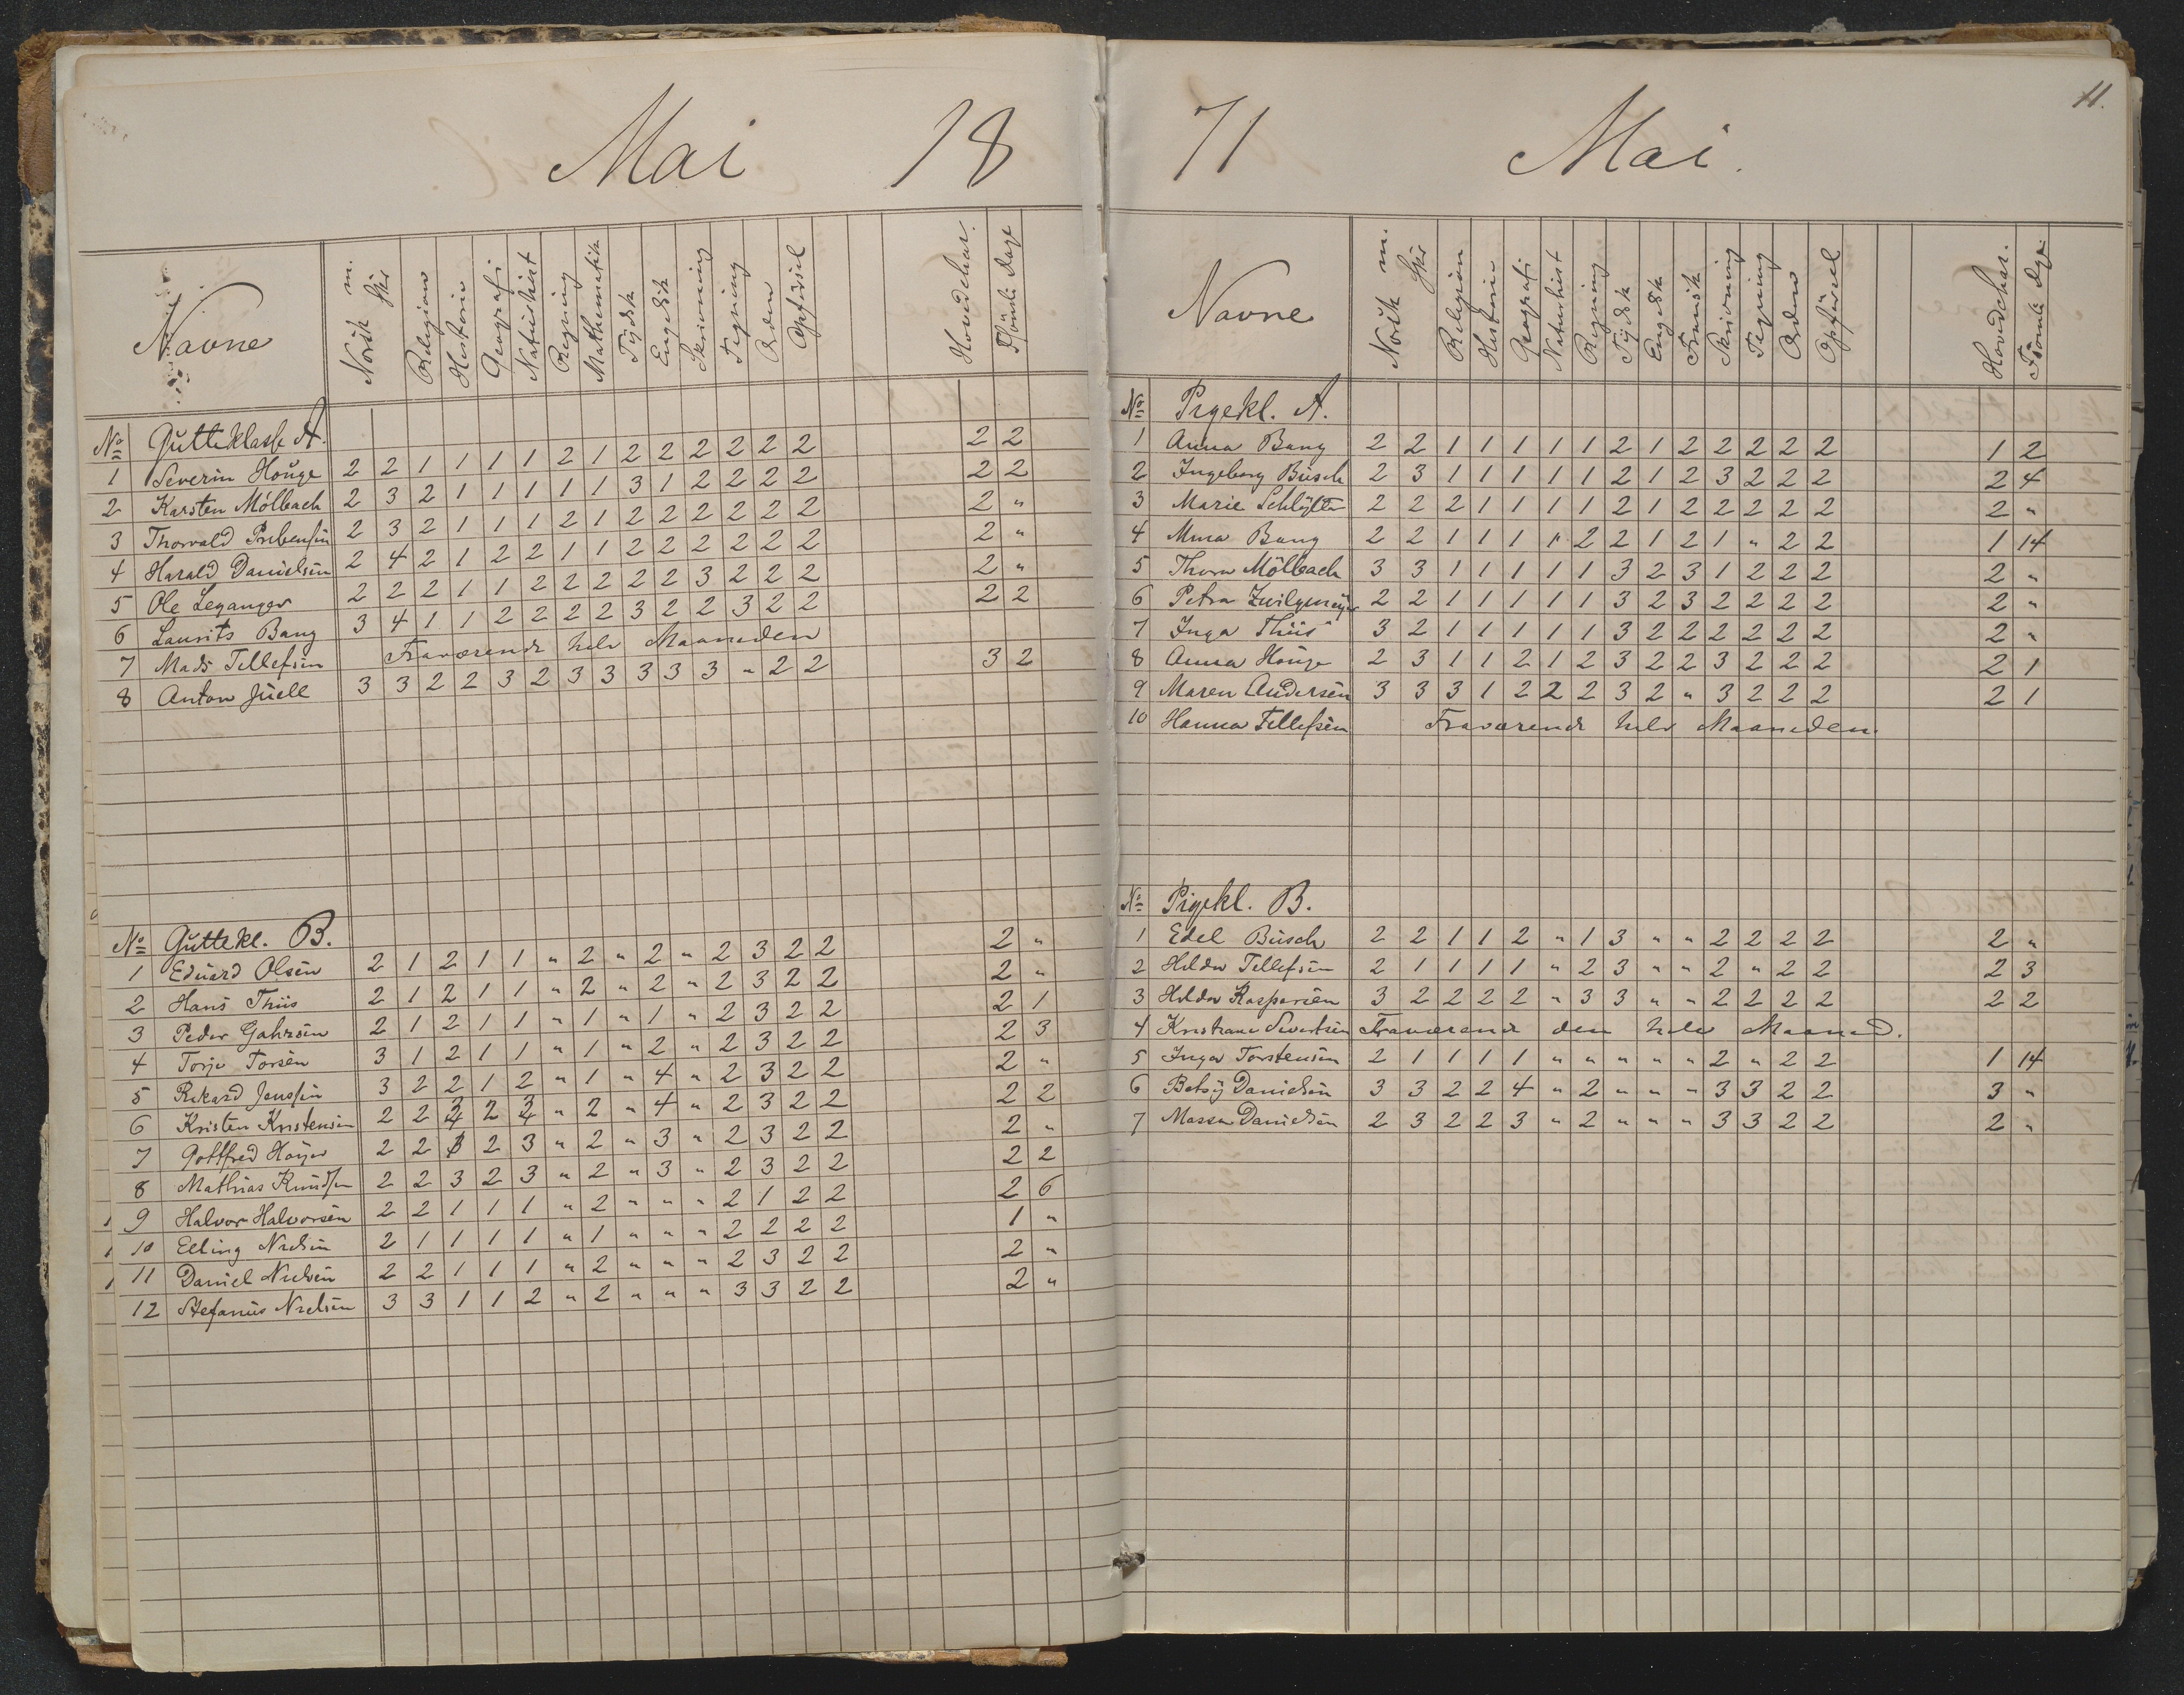 Mai 18
Navne Norsk m. Skr Religion Historie Geografi Naturhist Regning Mathematik Tydsk Engelsk Skrivning Tegning Orden Opförsel Hovedchar. Fsömte Dage
No Gutteklasse A.
1 Severin Houge 2 2 1 1 1 1 2 1 2 2 2 2 2 2 2 2
2 Karsten Mölbach 2 3 2 1 1 1 1 1 3 1 2 2 2 2 2 2
3 Thorvald Prebensen 2 3 2 1 1 1 2 1 2 2 2 2 2 2 2 "
4 Harald Danielsen 2 4 2 1 2 2 1 1 2 2 2 2 2 2 2 "
5 Ole Leganger 2 2 2 1 1 2 2 2 2 2 3 2 2 2 2 "
6 Laurits Bang 3 4 1 1 2 2 2 2 3 2 2 3 2 2 2 2
7 Mads Tellefsen Fraværende hele Maaneden
8 Anton Juell 3 3 2 2 3 2 3 3 3 3 3 " 2 2 3 2
No Guttekl. B.
1 Eduard Olsen 2 1 2 1 1 " 2 " 2 " 2 3 2 2 2 "
2 Hans Thiis 2 1 2 1 1 " 2 " 2 " 2 3 2 2 2 "
3 Peder Gahrsen 2 1 2 1 1 " 1 " 1 " 2 3 2 2 2 1
4 Torje Torsen 3 1 2 1 1 " 1 " 2 " 2 3 2 2 2 3
5 Rikard Jensen 3 2 2 1 2 " 1 " 4 " 2 3 2 2 2 "
6 Kristen Kristensen 2 2 3 2 3 " 2 " 4 " 2 3 2 2 2 2
7 Gottfred Höyer 2 2 3 2 3 " 2 " 3 " 2 3 2 2 2 "
8 Mathias Knudsen 2 2 3 2 3 " 2 " 3 " 2 3 2 2 2 2
9 Halvor Halvorsen 2 2 1 1 1 " 2 " " " 2 1 2 2 2 6
10 Elling Nielsen 2 1 1 1 1 " 1 " " " 2 2 2 2 1 "
11 Daniel Nielsen 2 2 1 1 1 " 2 " " " 2 3 2 2 2 "
12 Stefanus Nielsen 3 3 1 1 2 " 2 " " " 3 3 2 2 2 "
71 Mai.
11.
Navne Norsk m. Skr Religion Historie Geografi Naturhist Regning Tydsk Engelsk Fransk Skrivning Tegning Orden Opförsel Hovedchar. Fsömte Dge
No Pigekl. A.
1 Anna Bang 2 2 1 1 1 1 1 2 1 2 2 2 2 2 1 2
2 Ingeborg Busch 2 3 1 1 1 1 1 2 1 2 3 2 2 2 2 4
3 Marie Schlytter 2 2 2 1 1 1 1 2 1 2 2 2 2 2 2 "
4 Mina Bang 2 2 1 1 1 1 2 2 1 2 1 " 2 2 1 14
5 Thora Mölbach 3 3 1 1 1 1 1 3 2 3 1 2 2 2 2 "
6 Petra Zwilgmeyer 2 2 1 1 1 1 1 3 2 3 2 2 2 2 2 "
7 Inga Thiis 3 2 1 1 1 1 1 3 2 2 2 2 2 2 2 "
8 Anna Houge 2 3 1 1 2 1 2 3 2 2 3 2 2 2 2 1
9 Maren Andersen 3 3 3 1 2 2 2 3 2 " 3 2 2 2 2 1
10 Hanna Tellefsen Fraværende hele Maaneden.
No Pigekl. B.
1 Edel Busch 2 2 1 1 2 " 1 3 " " 2 2 2 2 2 "
2 Hilda Tellefsen 2 1 1 1 1 " 2 3 " " 2 " 2 2 2 3
3 Hilda Kaspersen 3 2 2 2 2 " 3 3 " " 2 2 2 2 2 2
4 Kristiane Sivertsen Fraværende den hele Maaned.
5 Inga Torstensen 2 1 1 1 1 " " " " " 2 " 2 2 1 14
6 Betsy Danielsen 3 3 2 2 4 " 2 " " " 3 3 2 2 3 "
7 Massa Danielsen 2 3 2 2 3 " 2 " " " 3 3 2 2 2 "